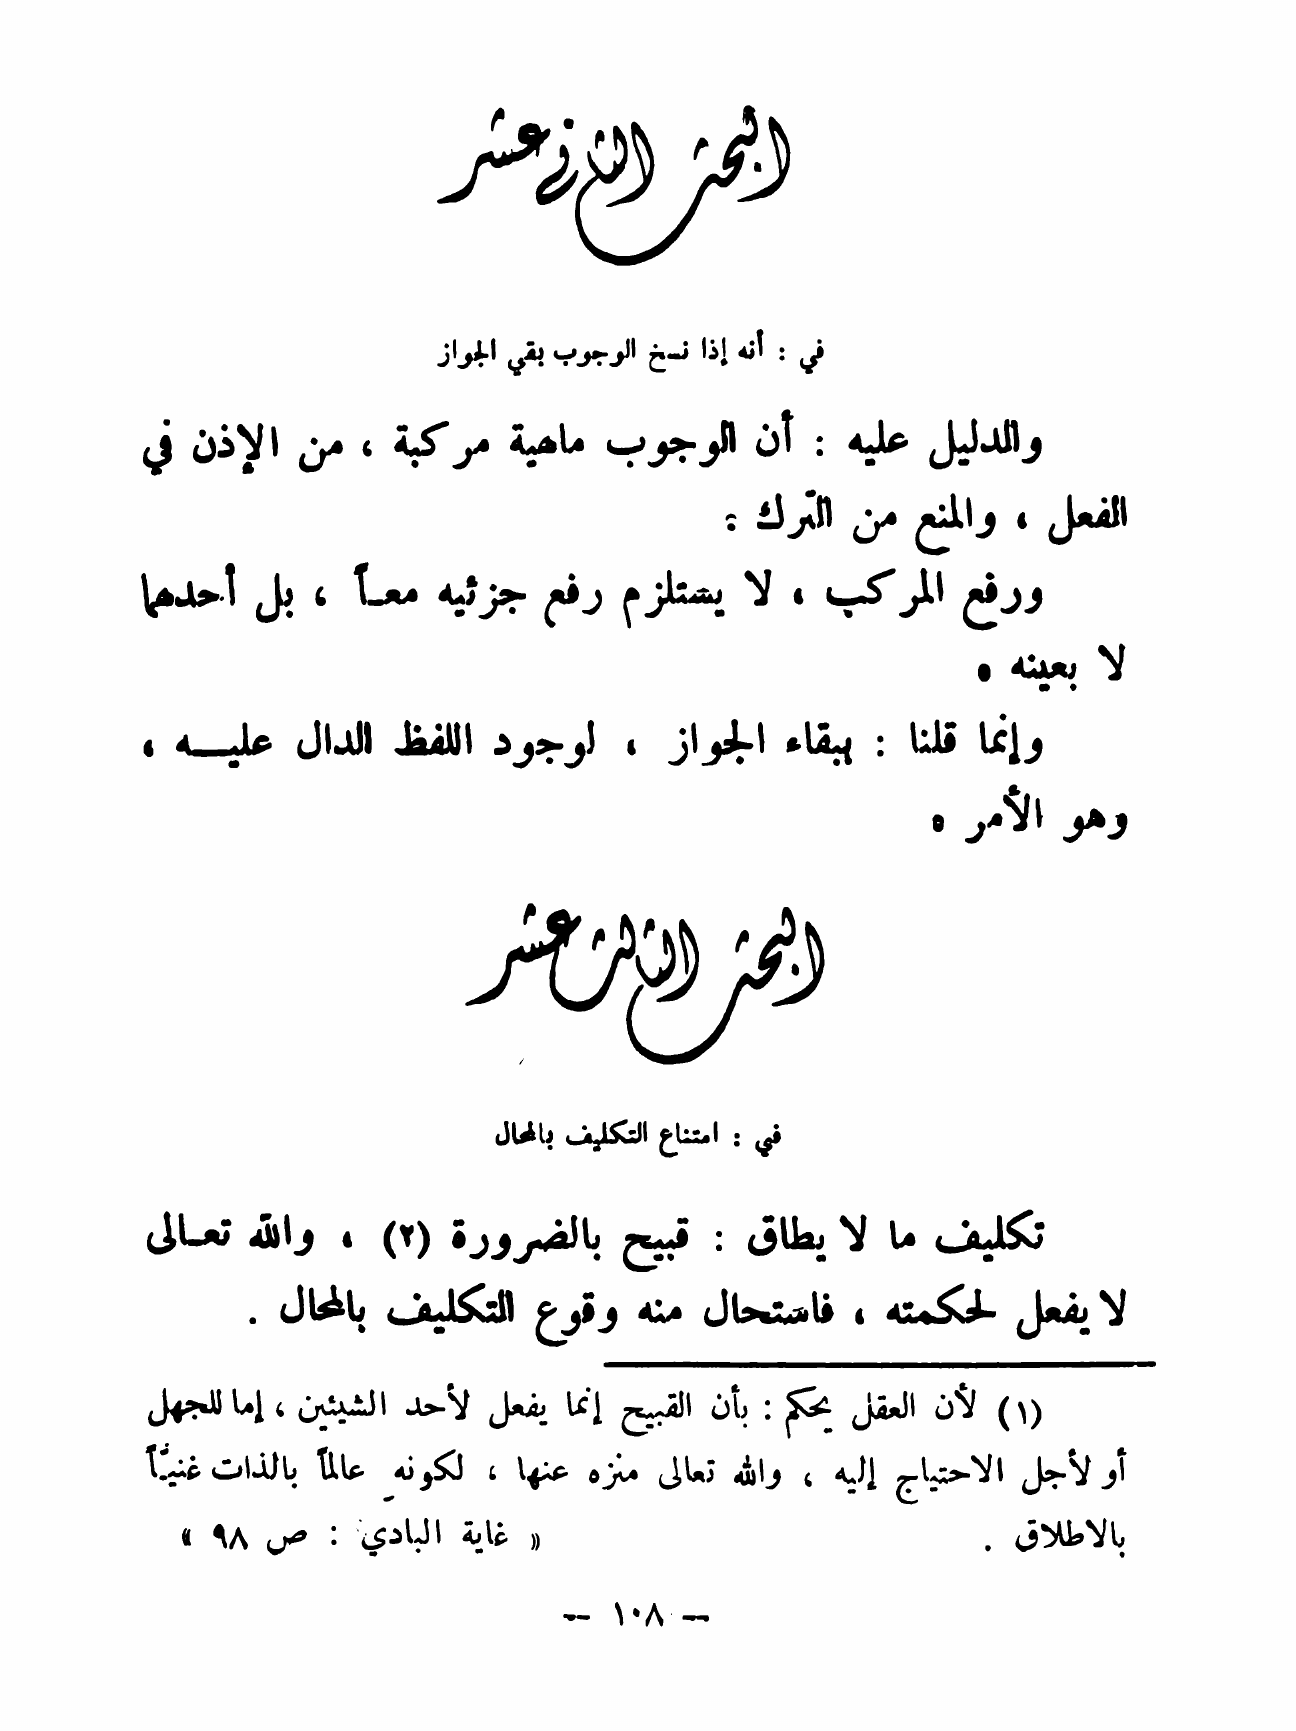 البحث الثاني عشر
في : أنه إذا نسخ الوجوب بقي الجواز
والدليل عليه : أن الوجوب ماهية مركبة ، من الإذن في
الفعل ، والمنع من الترك :
ورفع المركب ، لا يستلزم رفع جزئيه معاً ، بل أحدهما
لا بعينه .
وإنما قلنا : ببقاء الجواز ، لوجود اللفظ الدال عليه ،
وهو الأمر .
البحث الثالث عشر
في : امتناع التكليف بالمحال
تكليف ما لا يطاق : قبيح بالضرورة (٢) ، والله تعالى
لا يفعل لحكمته ، فاستحال منه وقوع التكليف بالمحال .
(١) لأن العقل يحكم : بأن القبيح إنما يفعل لأحد الشيئين ، إما للجهل
أو لأجل الاحتياج إليه ، والله تعالى منزه عنها ، لكونه عالماً بالذات غنيّاً
بالاطلاق . « غاية البادي : ص ٩٨ »
— ١٠٨ —